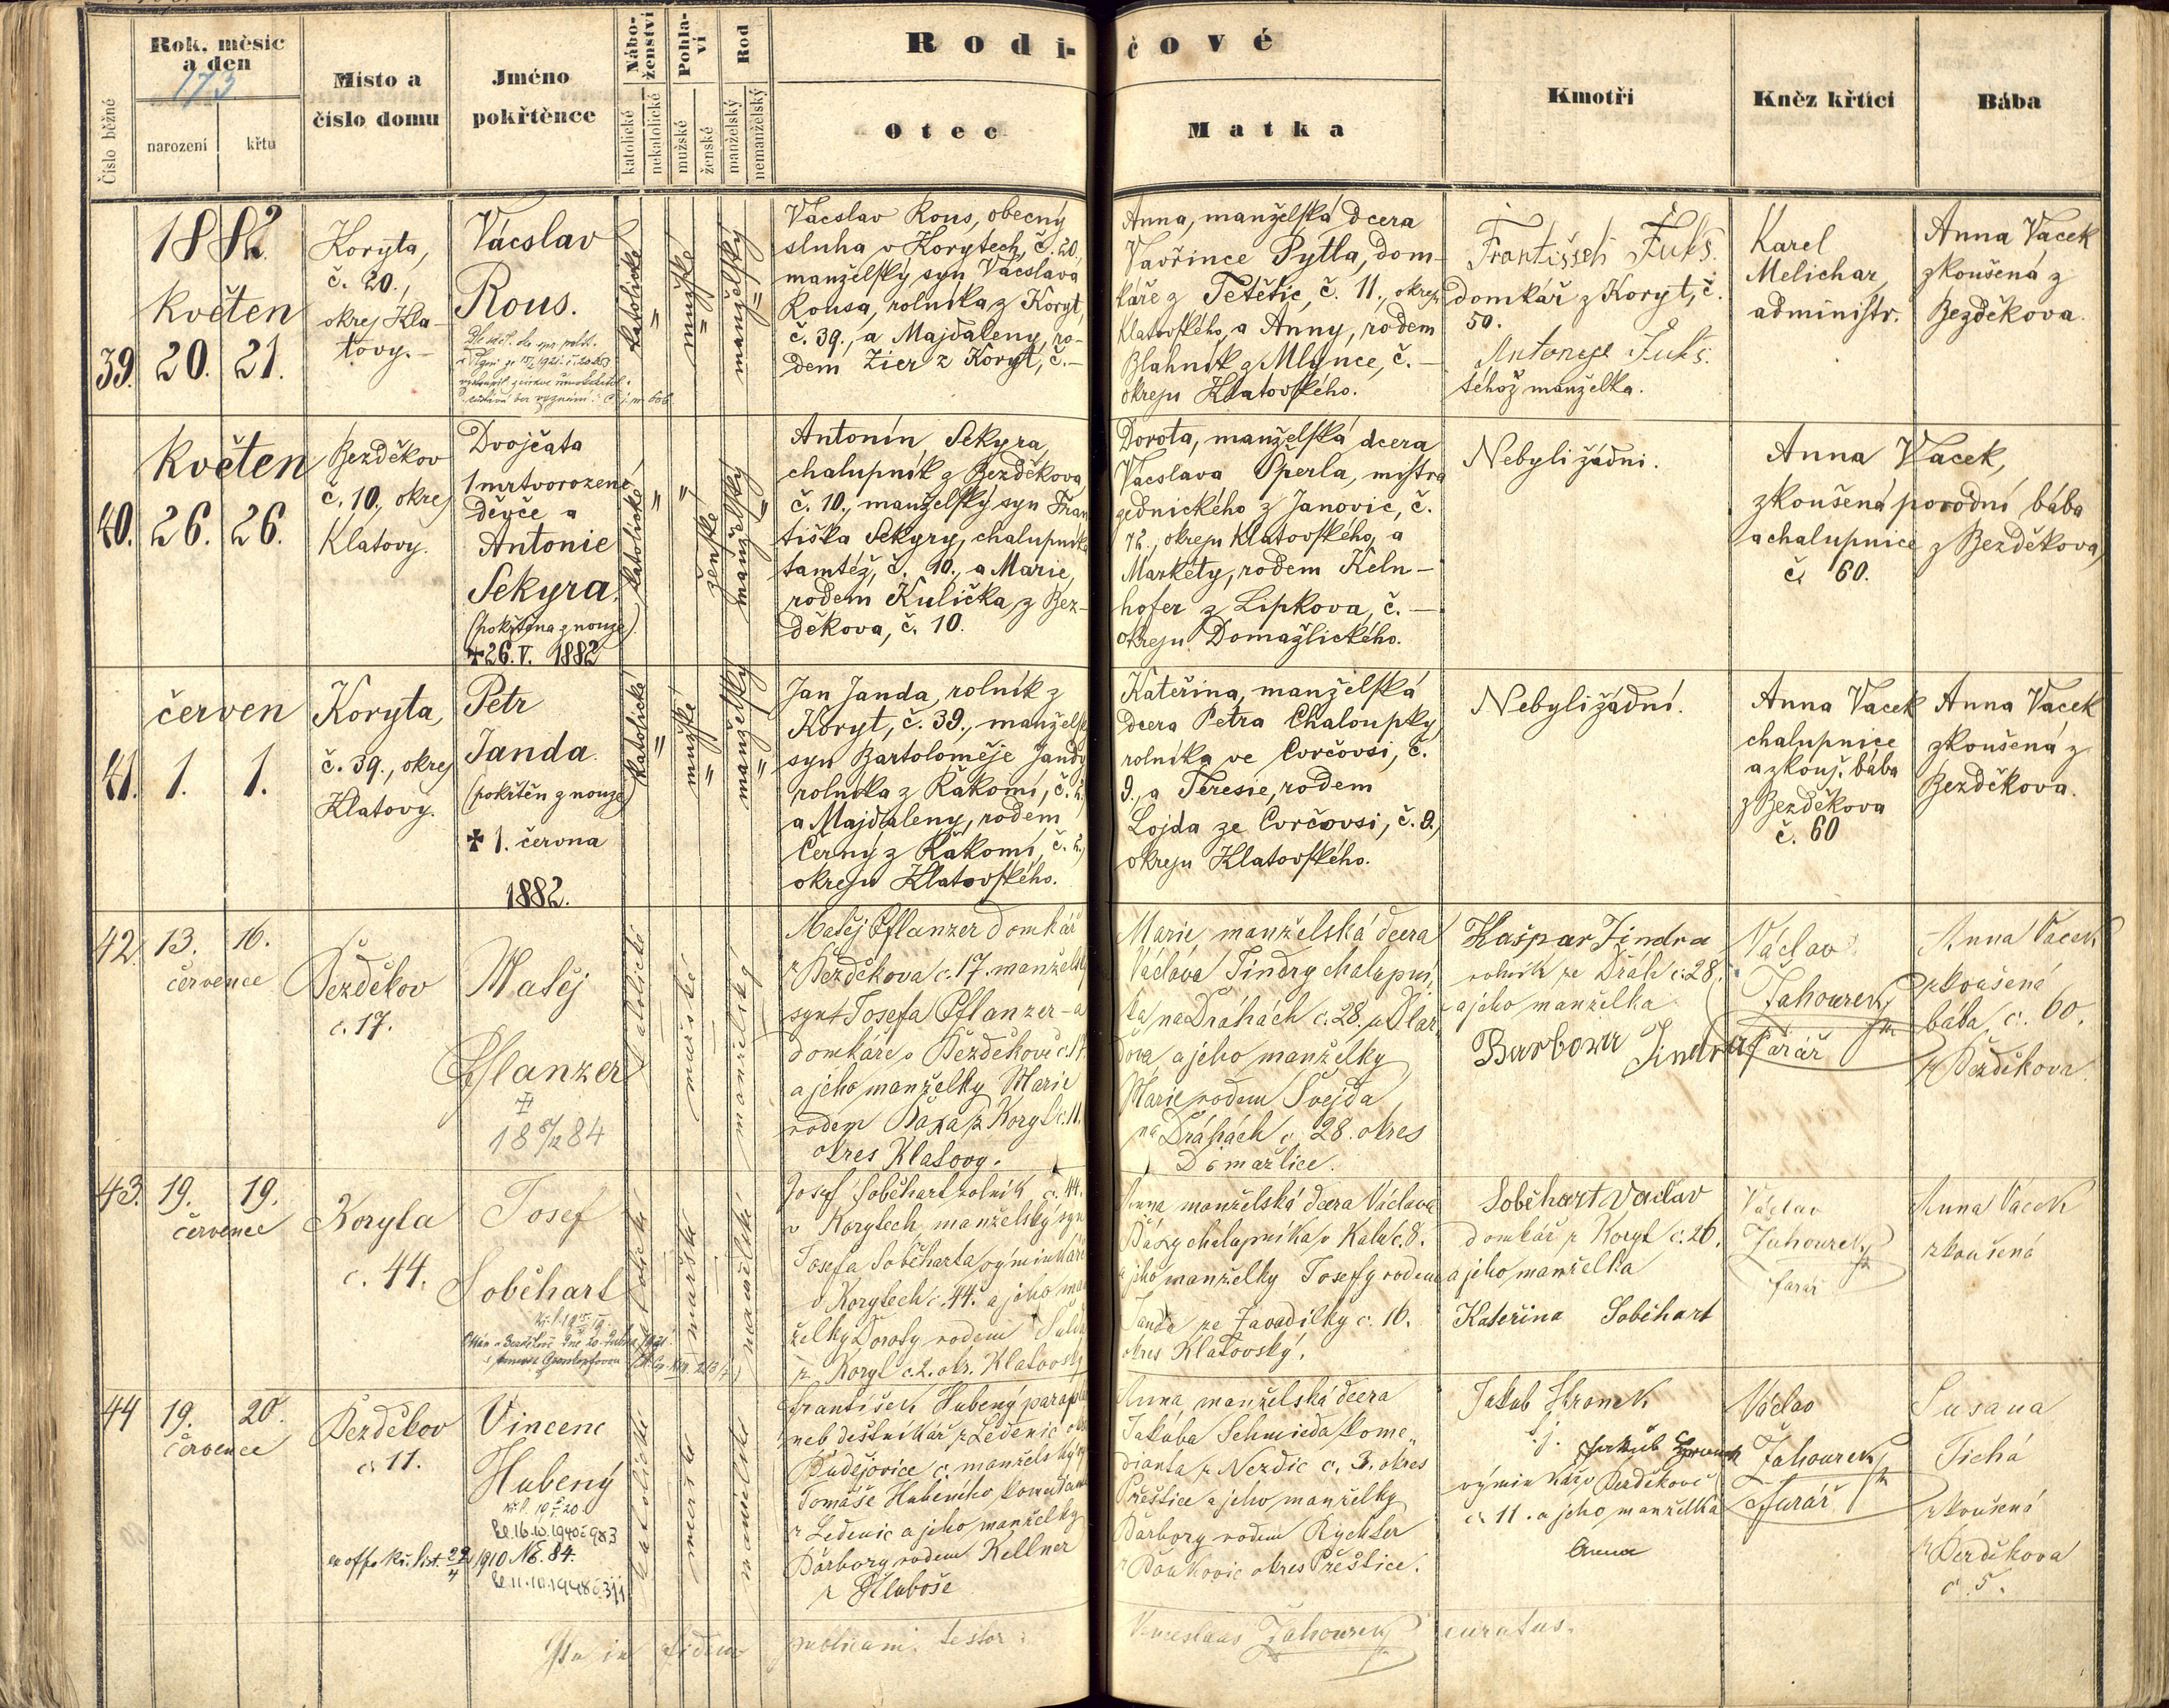 Rodičové
Rok, měsíc a den
173
Číslo běžné
narození
křtu
Místo a číslo domu
Jméno pokřtěnce
Náboženství
katolické
nekatolické
Pohlaví
mužské
ženské
Rod
manželský
nemanželský
Otec
Matka
Kmotři
Kněz křtící
Bába
39.
1882.
Květen
20. 21.
Koryta,
č. 20.,
okrej Kla-
tovy.
Vácslav
Rous.
katolické
mužské
manželský
Vácslav Rous, obecný
sluha v Korytech, č. 20,
manželský syn Vácslava
Rousa, rolníka z Koryt,
č. 39., a Majdaleny, ro-
dem Zier z Koryt, č.—
Anna, manželská dcera
Vavřince Pytla, dom-
káře z Tetětic, č. 11., okreju
Klatovského, a Anny, rodem
Blahník z Mlynce, č. —
okreju Klatovského.
František Fuks.
domkář z Koryt, č.
50.
Antonye Fuks.
téhož manželka.
Karel
Melichar,
administr.
Anna Vacek
zkoušená z
Bezděkova.
40.
Květen
26. 26.
Bezděkov
č. 10., okrej
Klatovy.
Dvojčata
1 mrtvorozené
děvče a
Antonie
Sekyra.
(pokřtěna z nouze).
✝26. V. 1882
katolické
ženské
manželský
Antonín Sekyra,
chalupník z Bezděkova,
č. 10., manželský syn Fran
tiška Sekyry, chalupníka
tamtéž, č. 10., a Marie,
rodem Kulička z Bez-
děkova, č. 10.
Dorota, manželská dcera
Vácslava Operla, mistra
zednického z Janovic, č.
72., okreju Klatovského, a
Markéty, rodem Keln-
hofer z Lipkova, č. —
okreju Domažlického.
Nebyli žádní.
Anna Vacek,
zkoušená porodní bába
a chalupnice z Bezděkova,
č. 60.
41.
červen
1. 1.
Koryta,
č. 39., okrej
Klatovy.
Petr
Janda.
(pokřtěn z nouze)
✝ 1. června
1882.
katolické
mužské
manželský
Jan Janda, rolník z
Koryt, č. 39., manželský
syn Bartoloměje Jandy
rolníka z Rakomí, č. 2.,
a Majdaleny, rodem
Černý z Rakomí, č. 2.,
okreju Klatovského.
Kateřina, manželská
dcera Petra Chaloupky,
rolníka ve Cvrčovsi, č.
9., a Teresie, rodem
Lojda ze Cvrčovsi, č. 9.,
okreju Klatovského.
Nebyli žádní.
Anna Vacek
chalupnice
a zkouš. bába
z Bezděkova
č. 60
Anna Vacek
zkoušená z
Bezděkova.
42.
13. 16.
července
Bezděkov
č. 17.
Matěj
Pflanzer
✝
katolické
mužské
manželský
Matěj Pflanzer domkář
z Bezděkova č. 17. manželský
syn Josefa Pflanzer-a
domkáře v Bezděkově č. 17
a jeho manželky Marie
rodem z Koryt č. 11.
okres Klatovy.
Marie manželská dcera
Václava Jindry chalupní
ka na Dráhách č. 28.
a jeho manželky
Marie rodem Švejda
na Dráhách č. 28. okres
Domažlice.
Kašpar Jindra
rolník ze Dráh č. 28.
a jeho manželka
Barbora Jindra
Václav
Zahourek
farář
Anna Vacek
zkoušená
bába, č. 60.
z Bezděkova.
43.
19. 19.
července
Koryta
č. 44.
Josef
Soběhart
katolické
mužské
manželské
Josef Soběhart rolník č. 44.
v Korytech, manželský syn
Josefa Soběharta výminkáře
v Korytech č. 44. a jeho man
želky Doroty rodem
z Koryt č. 2. okr. Klatovský
Anna manželská dcera Václava
chalupníka v Kalu č. 8.
a jeho manželky Josefy rodem
Janda ze Zavadilky č. 16.
okres Klatovský.
Soběhart Václav
domkář z Koryt č. 26.
a jeho manželka
Kateřina Soběhart
Václav
Zahourek
farář
Anna Vacek
zkoušená
44
19. 20.
července
Bezděkov
č. 11.
Vincenc
Hubený
Kř. l.
16.10.1940 č. 983
ex offo kř. list. 1910 № 84.
11.10.1948
katolické
mužské
manželské
František Hubený
neb deštníkář z Ledenic
Budějovice č. manželský
Tomáše Hubeného
z Ledenic a jeho manželky
Barbory rodem Kellner
z Hluboše
Anna, manželská dcera
Jakuba Schmieda kome„
dianta z Nezdic č. 3. okres
Přeštice a jeho manželky
Barbory rodem Rychter
okres Přeštice.
Jakub Hromek
výminkář v Bezděkově
č. 11. a jeho manželka
Anna
Václav
Zahourek
farář
Susana
Tichá
zkoušená
z Bezděkova
č. 5.
in fidem publicam testor: Venceslaus Zahourek curatus.